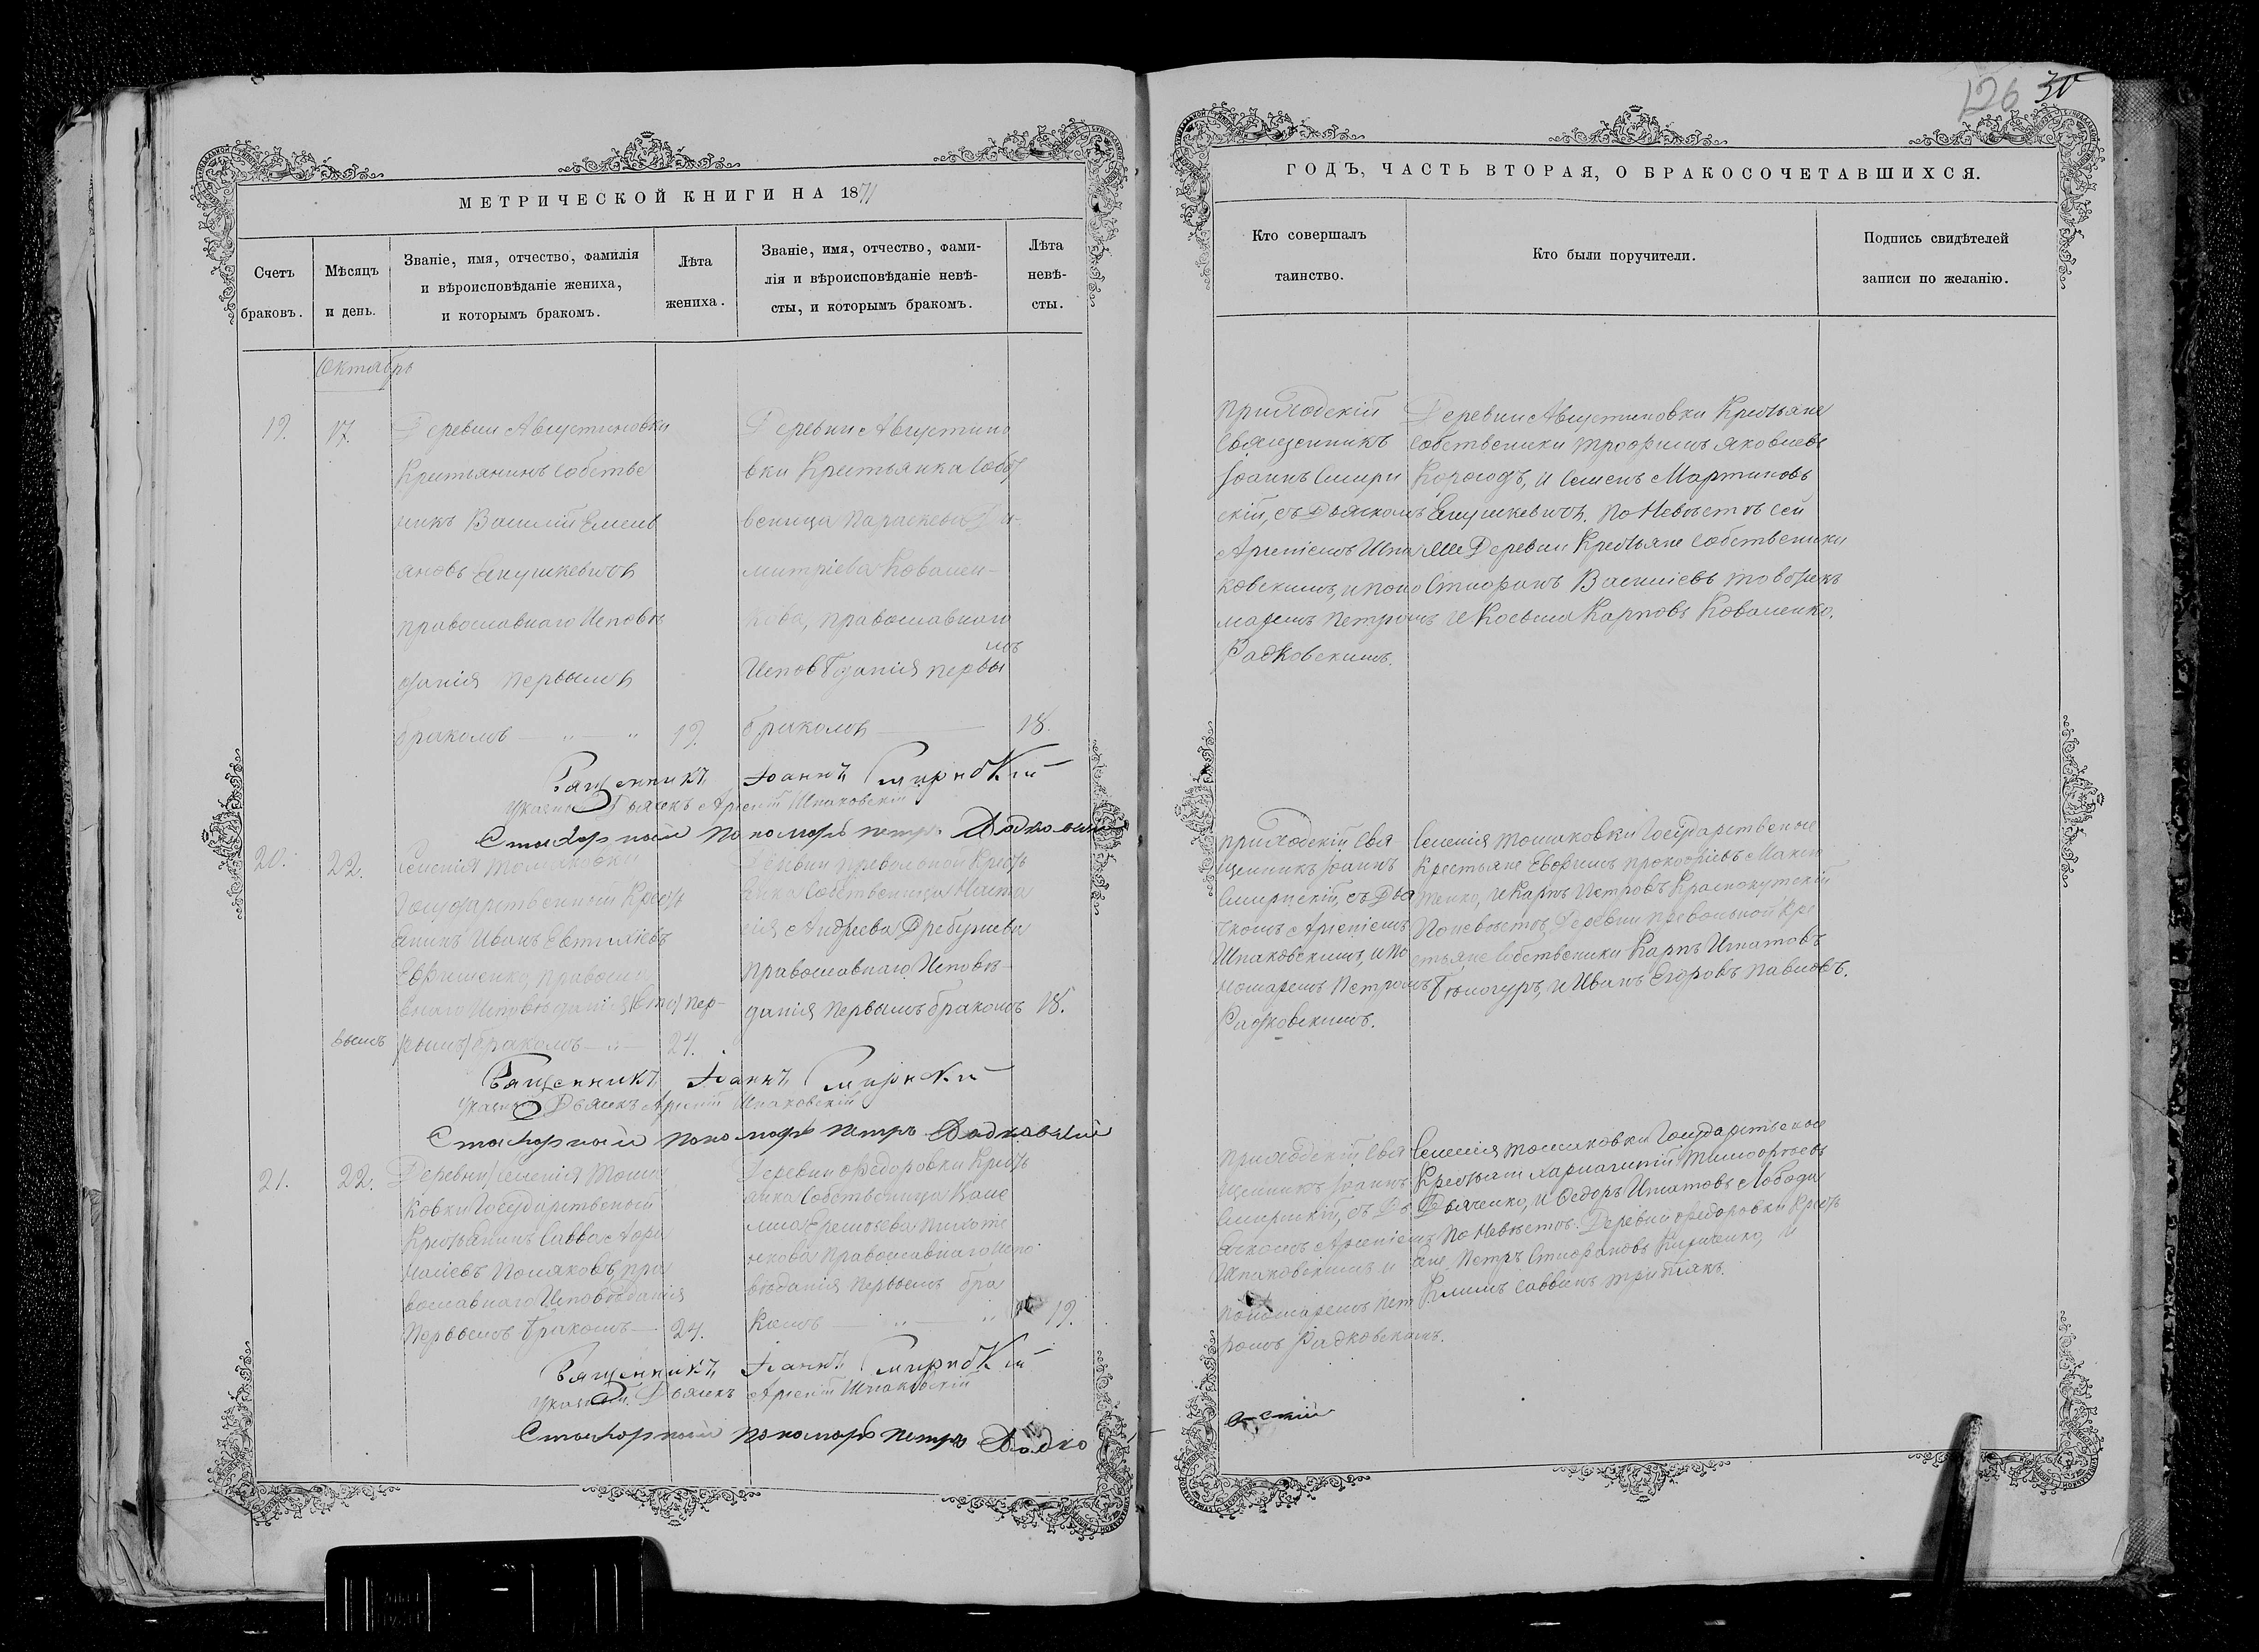 126 30
МЕТРИЧЕСКОЙ КНИГИ НА 1871
Счетъ браковъ.
Мѣсяцъ и день.
Званіе, имя, отчество, фамилія
и вѣроисповѣданіе жениха,
и которымъ бракомъ.
Лѣта жениха.
Званіе, имя, отчество, фами-
лія и вѣроисповѣданіе невѣ-
сты, и которымъ бракомъ.
Лѣта невѣ-
сты.
Октябрь
19.
17.
Деревни Августиновки
Крестьянинъ Собстве
никъ Василій Емелі
ановъ Янушкевичъ
православнаго Исповѣ
данія первымъ
бракомъ — „ — „
19.
Деревни Августино
вки Крестьянка Собст
веница Параскева Ди-
митріева Ковален-
кова, православнаго
Исповѣданія первы
мъ
бракомъ —
18.
Священникъ Іоаннъ Смирнскій
Указный Дьячекъ Арсеній Шпаковскій
Стихарный пономарь петръ Радковскій
20.
22.
Селенія Томаковки
Государственный Крест
янинъ Иванъ Евтихіевъ
Ефименко, правосла
внаго Исповѣданія (вто) пер-
вымъ
(рымъ) бракомъ — „ —
24.
Деревни превольной Крест
янка Собственица Наста
сія Андреева Дребушева
православнаго Исповѣ-
данія первымъ бракомъ
18.
Священникъ Іоаннъ Смирнскій
Указный Дьячекъ Арсеній Шпаковскій
Стихарный пономарь петръ Радковскій
21.
22.
Деревни/Селенія Тома
ковки Государственой
Крестьянинъ Савва Афа
насіевъ Поляковъ, пра
вославнаго Исповѣданія
Первымъ бракомъ —
24.
Деревни Федоровки Крест
янка Собственица
Православнаго Испо
вѣданія первымъ бра
комъ — „ — „
19.
Священникъ Іоаннъ Смирнскій
Указный Дьячекъ Арсеній Шпаковскій
Стихарный пономарь петръ Радко
ГОДЪ, ЧАСТЬ ВТОРАЯ, О БРАКОСОЧЕТАВШИХСЯ.
Кто совершалъ
таинство.
Кто были поручители.
Подпись свидѣтелей
записи по желанію.
приходскій
Священникъ
Іоаннъ Смирн
скій, съ Дьячкомъ
Арсеніемъ Шпа
ковскимъ, и поно
маремъ Петромъ
Радковскимъ.
Деревни Августиновки Крестьяне
Собственики Трофимъ Яковлевъ
Корогодъ, и Семенъ Мартиновъ
Янушкевичъ. По Невѣстѣ Сей
же Деревни Крестьяне Собственики
Стефанъ Василіевъ
и Косьма Карповъ Коваленко.
приходскій Свя
щенникъ Іоаннъ
Смирнскій, съ Дья
чкомъ Арсеніемъ
Шпаковскимъ, и по
номаремъ Петромъ
Радковскимъ.
Селенія Томаковки Государственые
Крестьяне Ефимъ Прокофіевъ Макси
менко, и Карпъ Петровъ Краснокутскій
По невѣстѣ, Деревни превольной Кре
стьяне Собственики Карпъ Игнатовъ
Бѣлогуръ, и Иванъ Егоровъ Павловъ.
приходскій Свя
щенникъ Іоаннъ
Смирнскій, съ Дь
ячкомъ Арсеніемъ
Шпаковскимъ и
пономаремъ Пет
ромъ Радковскимъ.
Селенія Томаковки Государственые
Крестьяне Харлампій Тимофѣевъ
Дьяченко, и Федоръ Игнатовъ Лобода
По Невѣстѣ. Деревни Федоровки Крест
яне Петръ Стефановъ Кириченко, и
Климъ Саввинъ Третьякъ.
вскій